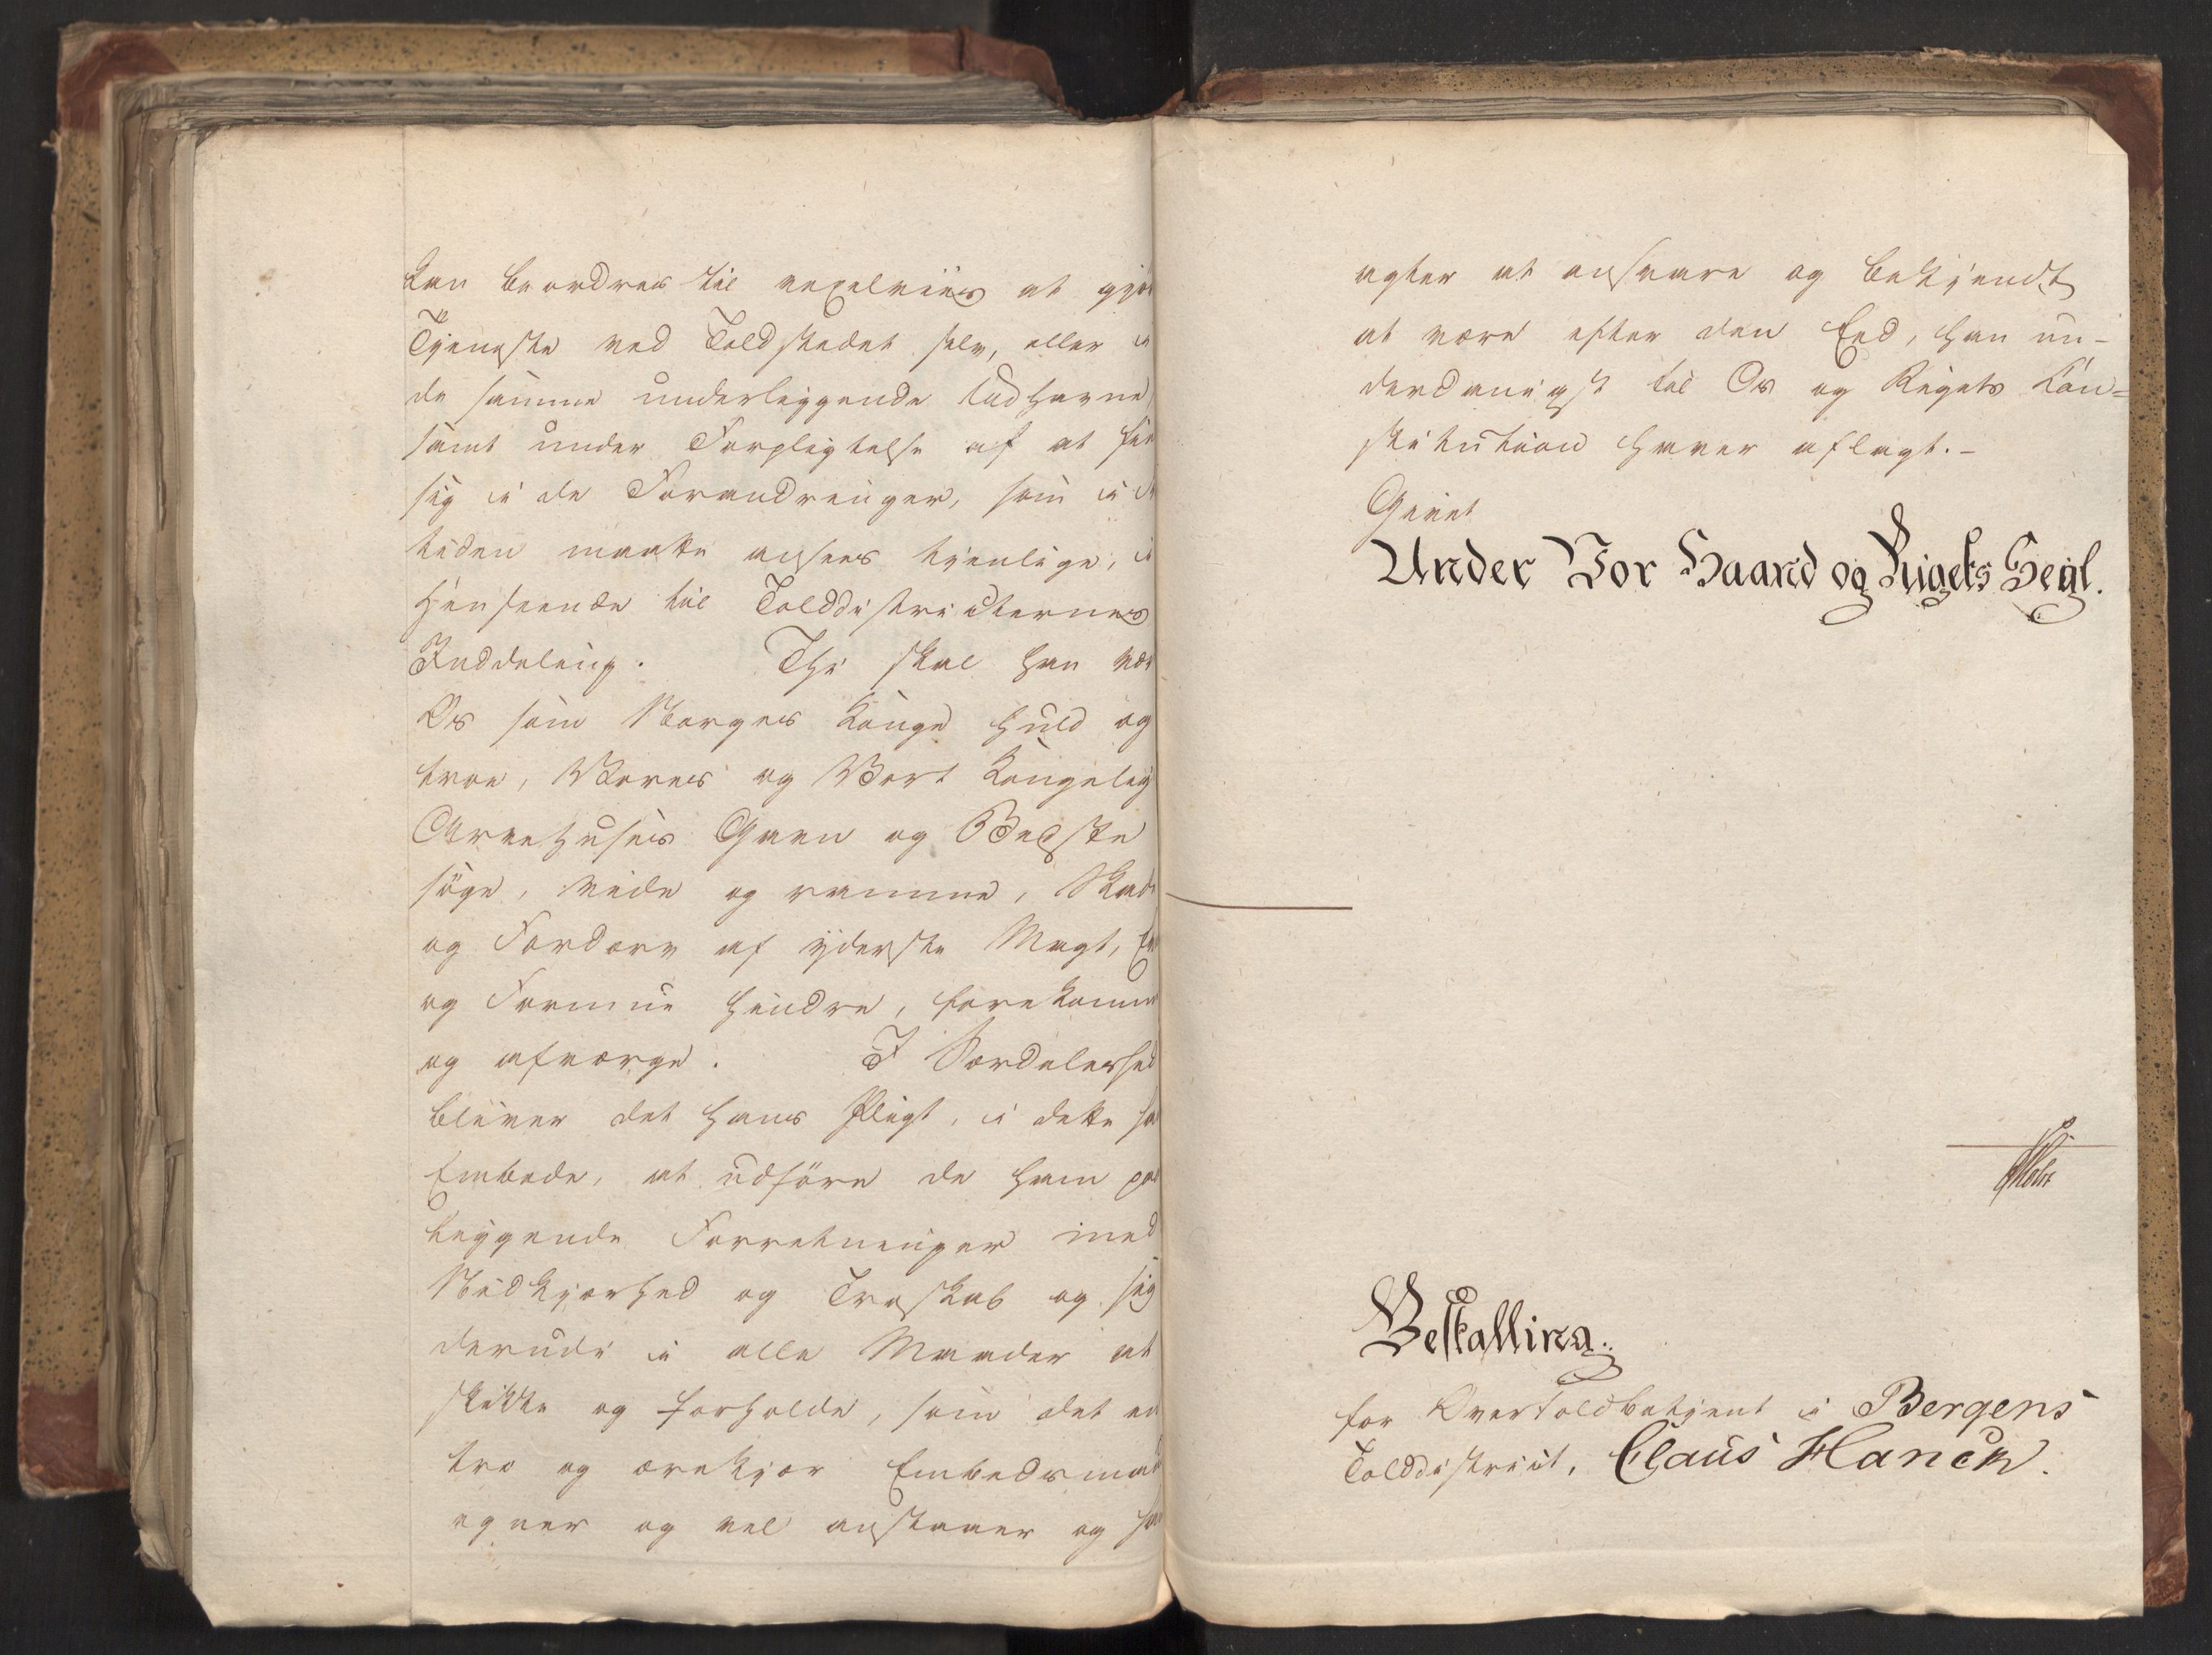 kan beordres til vexelviis at gjör
Tjeneste ved Toldstedet selv, eller i
de samme underliggende Udhavne
samt under Forpligtelse af at fin
sig i de Forandringer, som i F
tiden maatte ansees tjenlige, i
Henseende til Tolddistricternes
Inddeling. Thi skal han vær
Os som Norges Konge huld og
troe, Vores og Vort Kongelig
Arvehuses Gavn og Bedste
söge, vide og ramme, Skade
og Fordærv af yderste Magt, Ev
og Formue hindre, forekomme
og afværge. I Særdeleshed
bliver det hans Pligt, i dette ha
Embede, at udföre de ham paa
liggende Forretninger med
Nidkjærhed og Troskab og sig
derudi i alle Maader at
skikke og forholde, som det en
tro og ærekjær Embedsmand
egner og vel anstaaer og han
agter at ansvare og bekjendt
at være efter den Eed, han un-
derdanigst til Os og Rigets Kon=
stitution haver aflagt.-
Givet
Under Vor Haand og Rigets Segl.
Bestalling.
for Overtoldbetjent i Bergens
Tolddistrict, Claus Hanck.